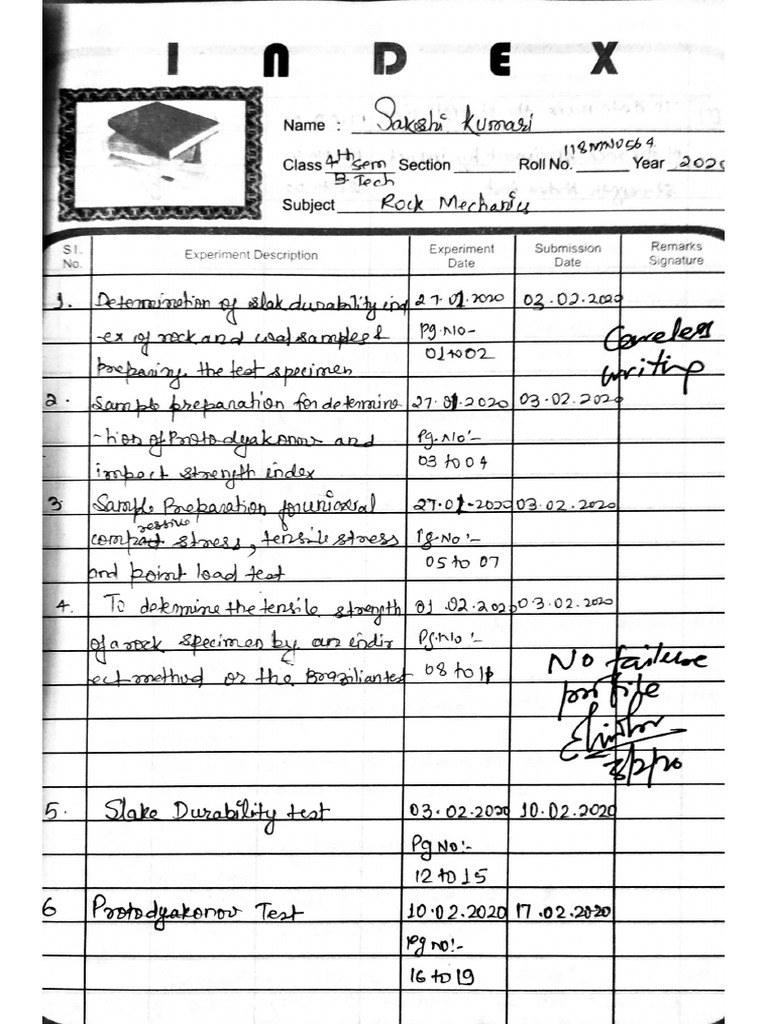 INDEX
Name : Sakshi Kumari
118MN0564
Class 4th sem Section Roll No. Year 2020
B.Tech
Subject Rock Mechanics
Sl. No. Experiment Description Experiment Date Submission Date Remarks Signature
1. Determination of slak durability ind 27.01.2020 03.02.2020
-ex of rock and coal samples & Pg.No- Careless
preparing the test specimen 01 to 02 writing
2. Sample preparation for determina 27.01.2020 03.02.2020
-tion of Protodyakonov and Pg.No:-
impact strength index 03 to 04
3 Sample Preparation for unioxial 27.01.2020 03.02.2020
compressive stress, tensile stress Pg.No:-
and point load test 05 to 07
4. To determine the tensile strength 01.02.2020 03.02.2020
of a rock specimen by an indir Pg.No:-
ect method or the Brazilian test 08 to 11
No failure
profile
3/2/20
5. Slake Durability test 03.02.2020 10.02.2020
Pg No:-
12 to 15
6 Protodyakonov Test 10.02.2020 17.02.2020
Pg no:-
16 to 19